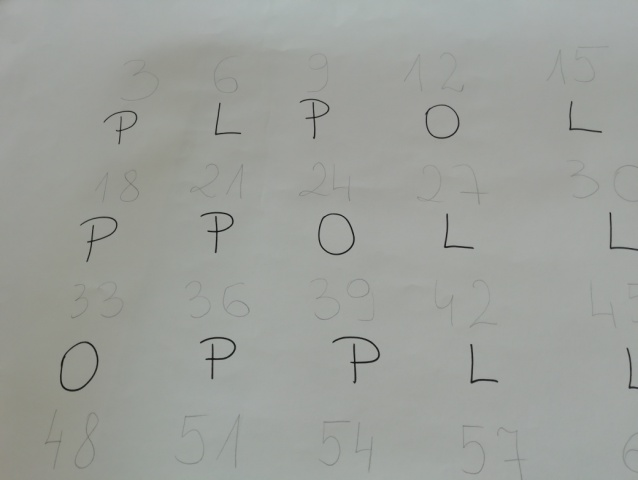 3 6 9 12 15
P L P O L
18 21 24 27 30
P P O L L
33 36 39 42 45
O P P L L
48 51 54 57